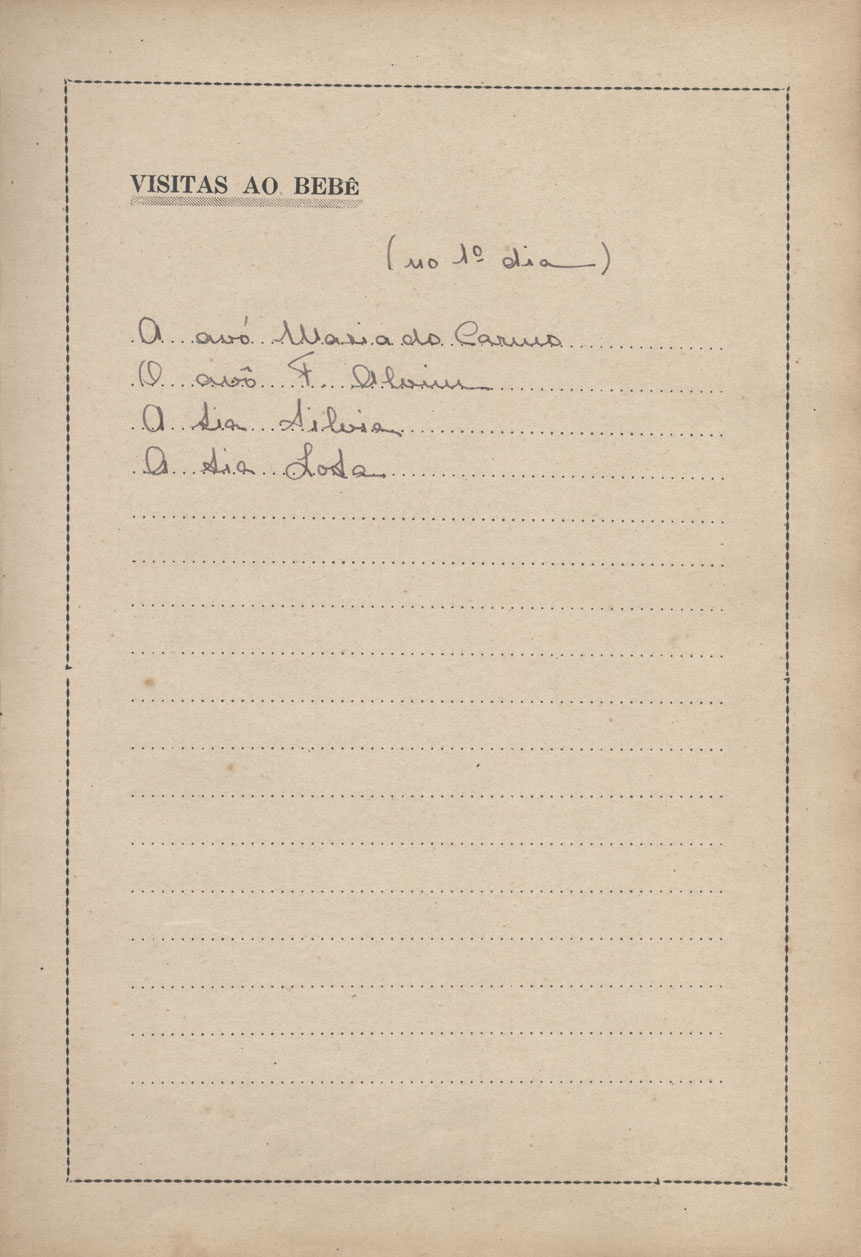 VISITAS AO BEBÊ
(no 1º dia)
A avó Maria do Carmo
O avô F. Alvim
A tia Silvia
A tia Lota